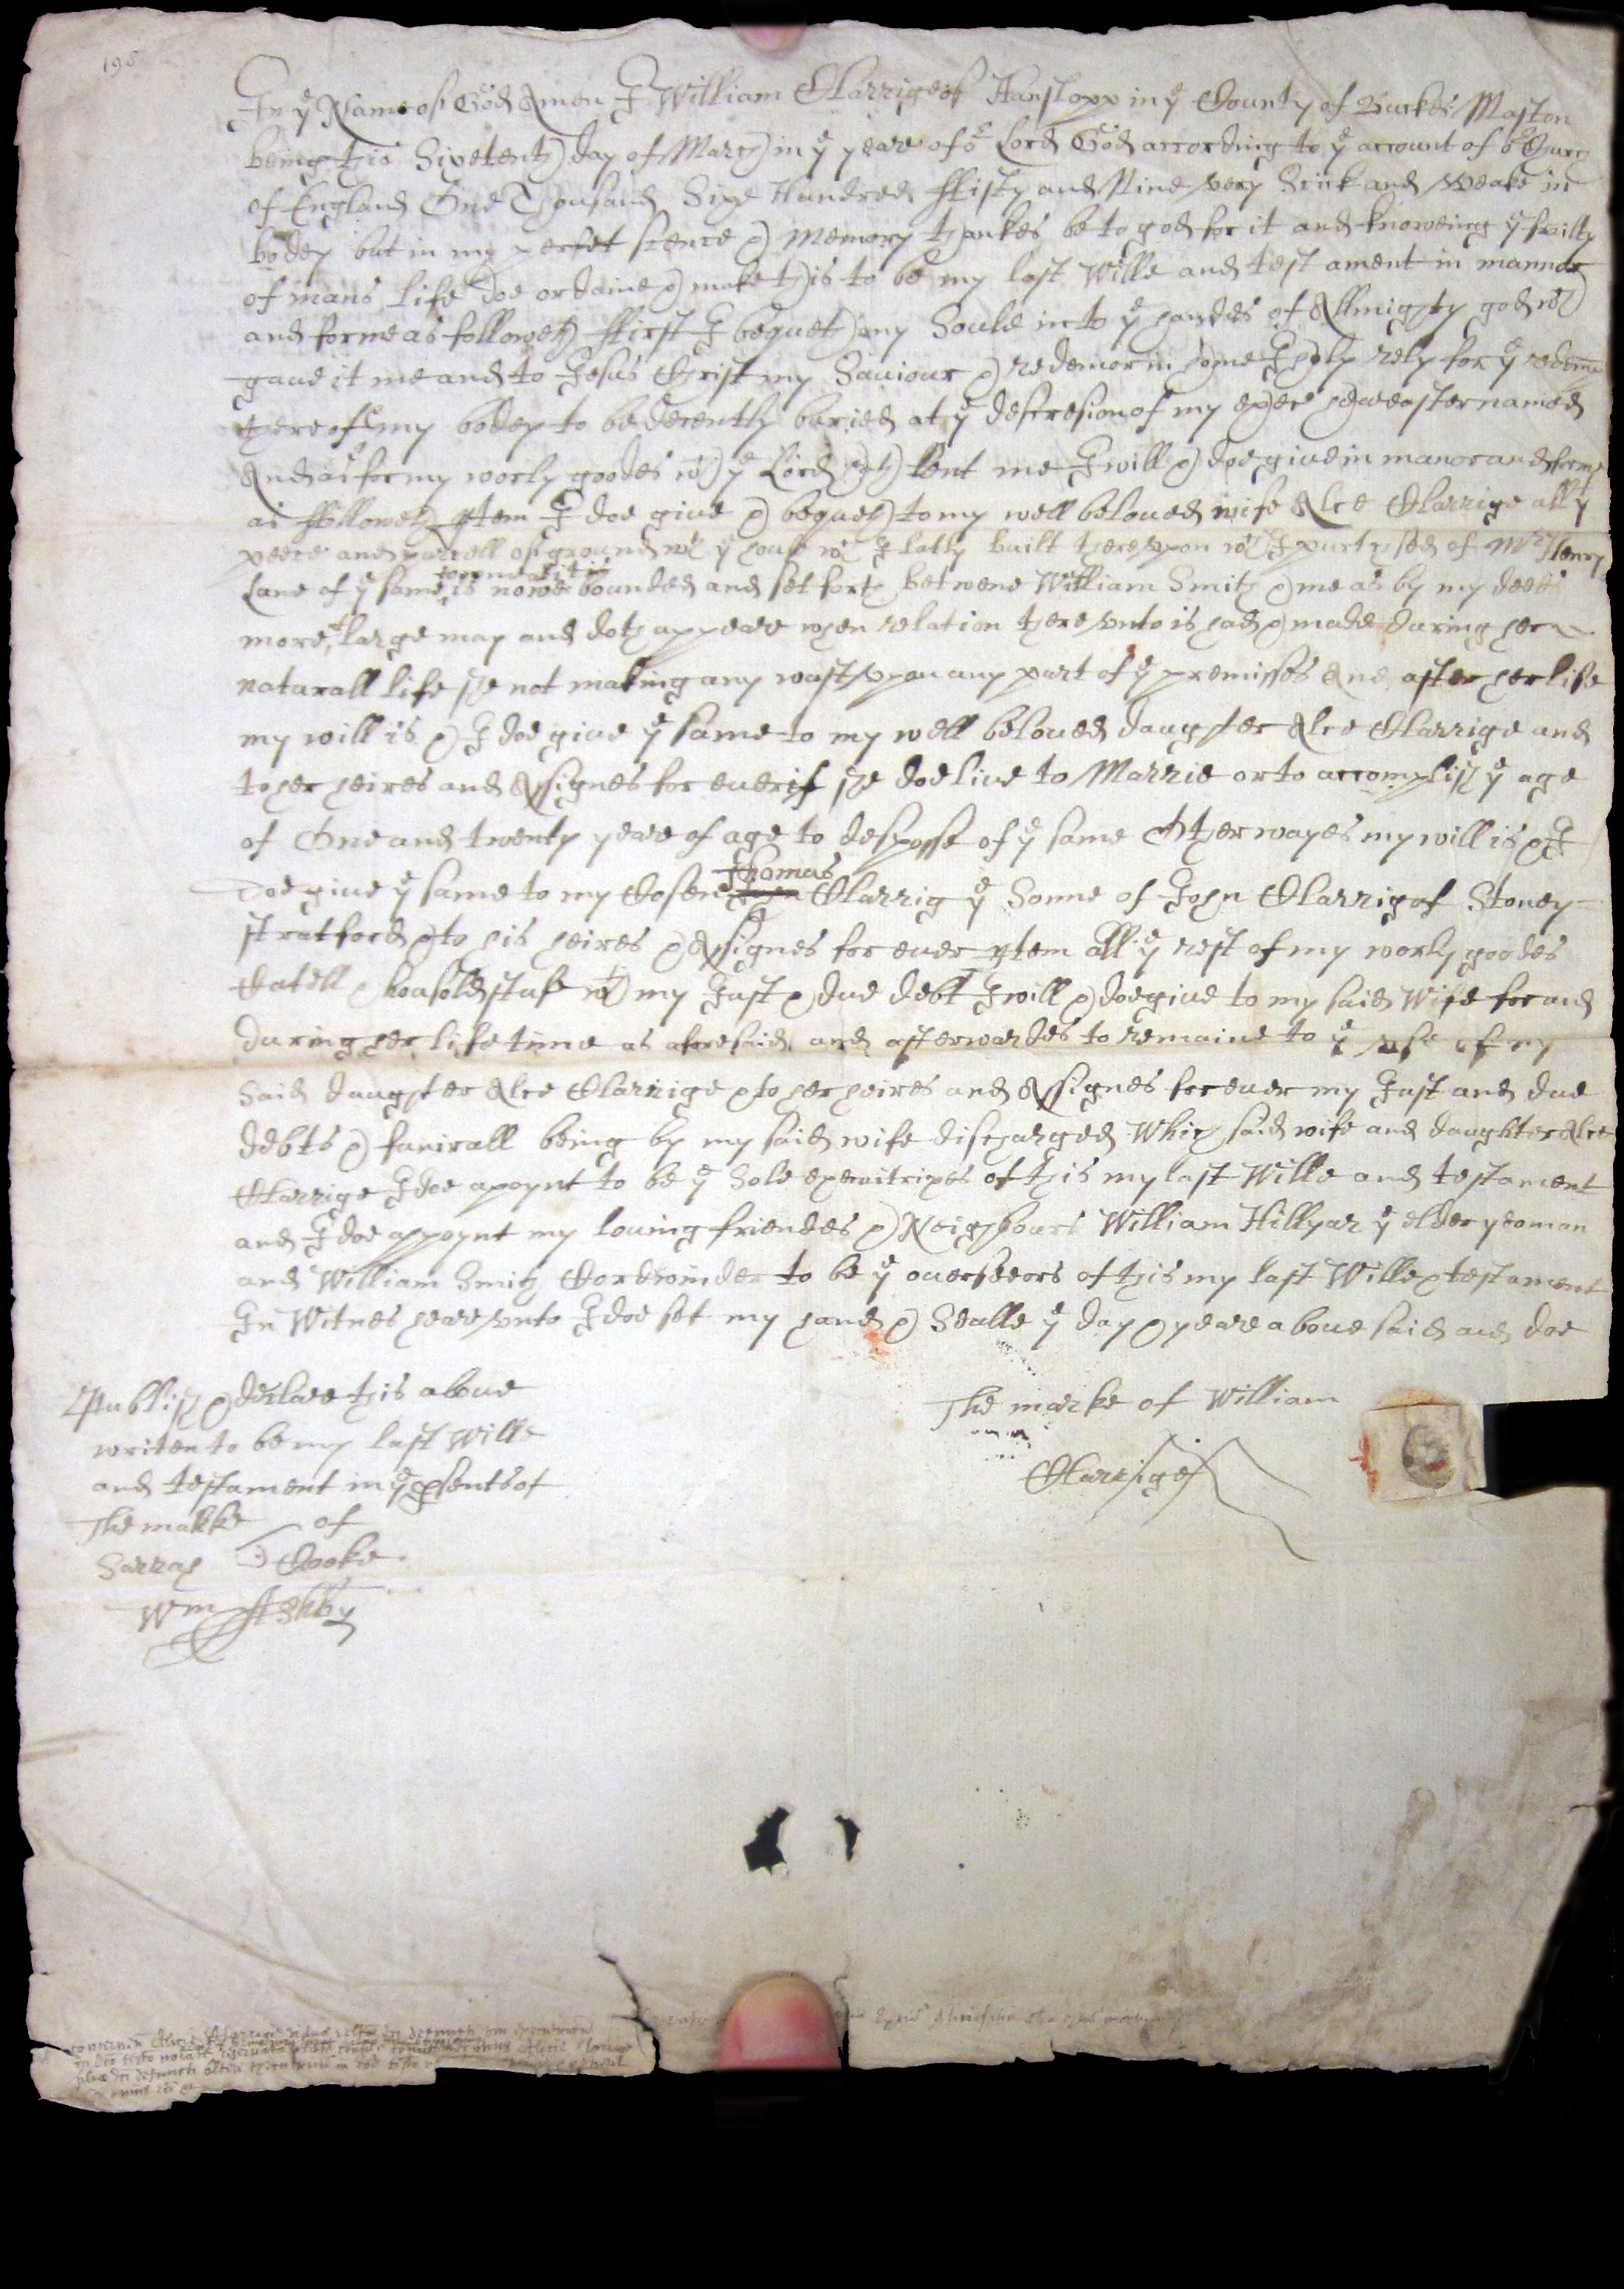 198
In ye Name of God Amen I William Clarrige of Hanslopp in ye County of Buckes Mason
being this Sixetenth day of March in ye yeare of or Lord God according to ye account of ye Church
of England One Thousand Sixe Hundred ffifty and Nine very Scick and Weake in
bodey but in my perfet scence & Memory thankes be to god for it and knoweing ye frailty
of mans life doe ordaine & make this to be my last Wille and testament in mannor
and forme as followeth ffirst I bequeth my Soule into ye handes of Allmighty god wch
gave it me and to Jesus Christ my Saviour & redemor in home I holy rely for ye
thereof my bodey to be decently buried at ye descresion of my hereafter named
And as for my worly goodes wch ye Lord hath lent me I will & doe give in manor and forme
as ffolloweth Item I doe give & bequeth to my well beloved wife Alce Clarrige all ye
peece and parcell of ground wth ye house wch I latly built thereupon wch I purchised of Mr Henry
Lane of ye same is nowe bounded and set forth betwene William Smith & me as by my deede
more at large may and doth appeare when relation thereunto is had & made during her
naturall life she not making any wast upon any part of ye premisses And after her life
my will is & I doe give ye same to my well beloved daughter Alce Clarrige and
to her heires and Assignes for ever if she doe live to Marrie or to accomplish ye age
of One and twenty yeare of age to desposse of ye same Otherwayes my will is & I
Thomas
doe give ye same to my Cosen John Clarrig ye Sonne of John Clarrig of Stoney
stratford & to his heires & Assignes for ever Item all ye rest of my worly goodes
Catell & housold stufe wth my Just & due debt I will & doe give to my said Wife for and
during her life time as aforesaid and afterwardes to remaine to ye use of my
Said daughter Alce Clarrige & to her heires and Assignes for ever my Just and due
debts & funirall being by my said wife discharged Which said wife and daughter Alce
Clarrige I doe apoynt to be ye Sole executrixes of this my last Wille and testament
and I doe appoynt my loving friendes & Neighbours William Hillyar ye elder yeoman
and William Smith Cordwinder to be ye overseeors of this my last Wille & testament
In Witnes heareunto I doe set my hand & Sealle ye day & yeare above said and doe
Publish & declare this above
writen to be my last Wille
and testament in ye psents of
The marke of
Sarrah Cooke
Wm Ashby
The marke of William
Clarrige